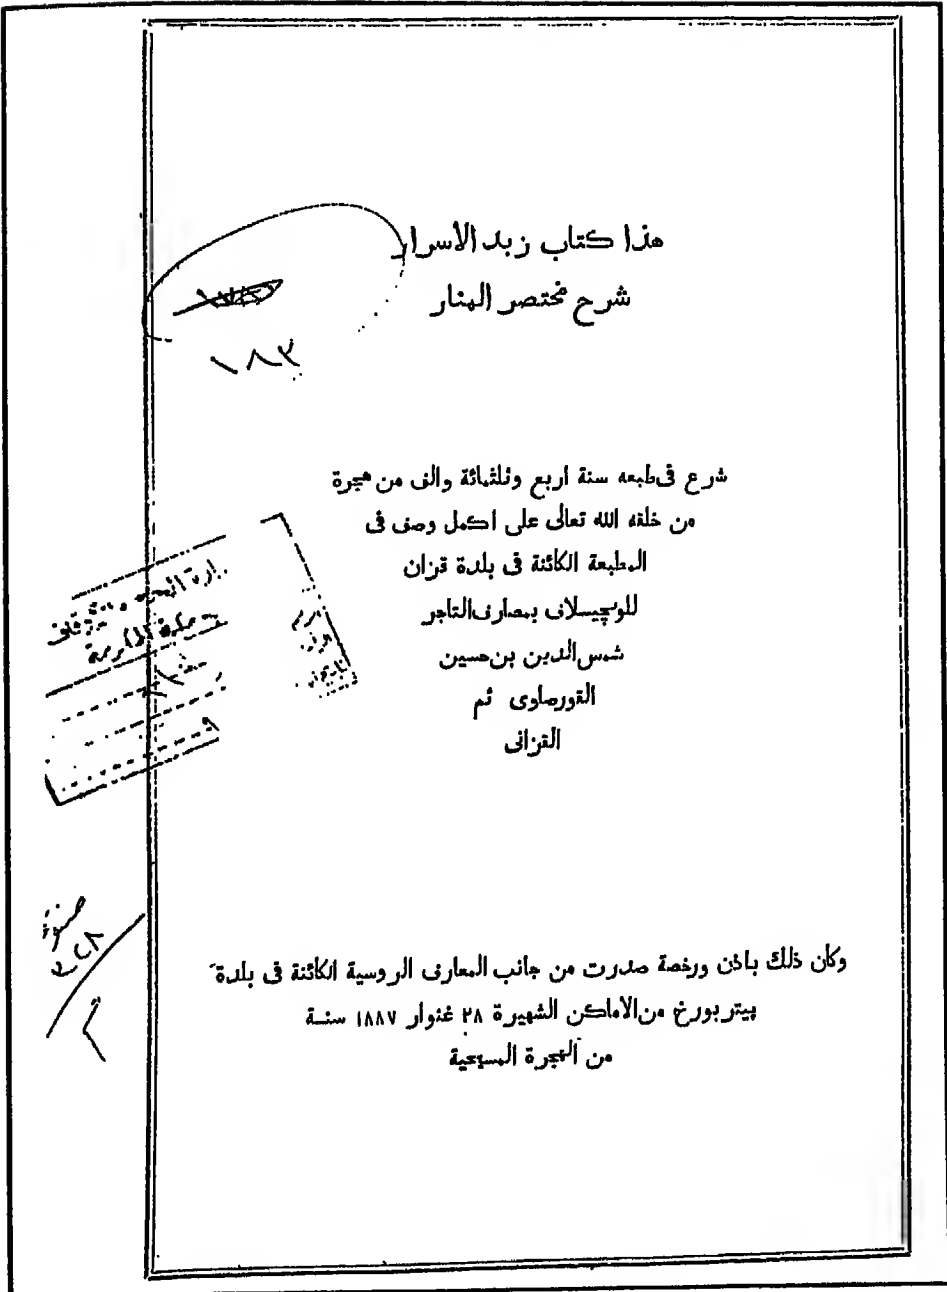 هذا كتاب زبد الاسرار
شرح مختصر المنار
١٨٣
شرع فى طبعه سنة اربع وثلثمائة والف من هجرة
من خلقه الله تعالى على اكمل وصف فى
المطبعة الكائنة فى بلدة قزان
للوچيسلاف بمصارف التاجر
شمس الدين بن حسين
القورصاوى ثم
القزانى
وكان ذلك باذن ورخصة صدرت من جانب المعارف الروسية الكائنة فى بلدة
پيتربورغ من الاماكن الشهيرة ٢٨ غنوار ١٨٨٧ سنة
من الهجرة المسيحية